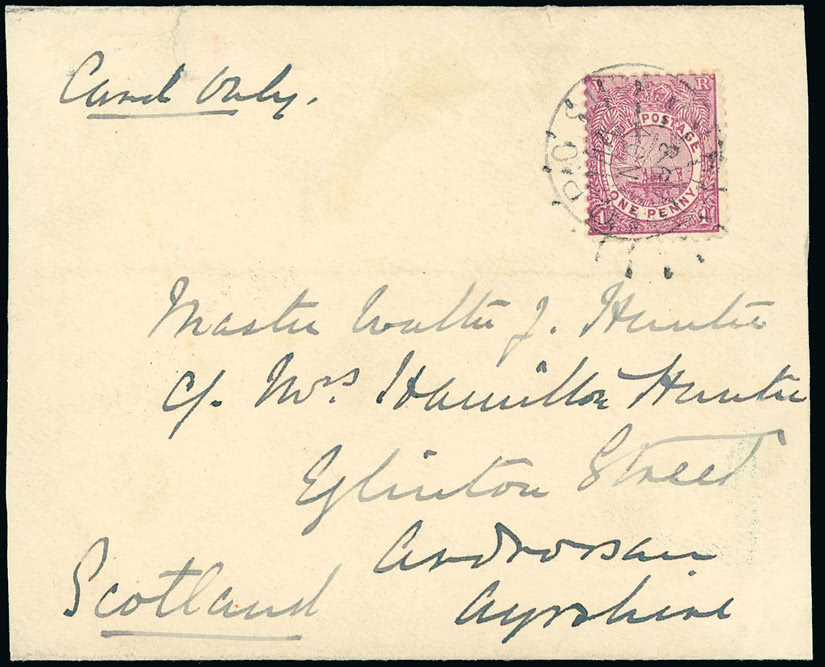 Card Only.
R
POSTAGE
ONE PENNY
Master Walter J. Hunter
c/. Mrs Hamilton Hunter
Eglinton Street
Ardrossan
Ayrshire
Scotland